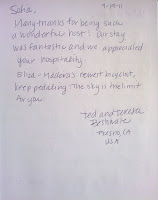 Soha,
4-19-11
Many thanks for being such
a wonderful host! Our stay
was fantastic and we appreciated
your hospitality.
Elisa - Madera's newest bicyclist,
keep pedaling. The sky is the limit
for you.
Ted and Teresa
Fresno, CA
USA